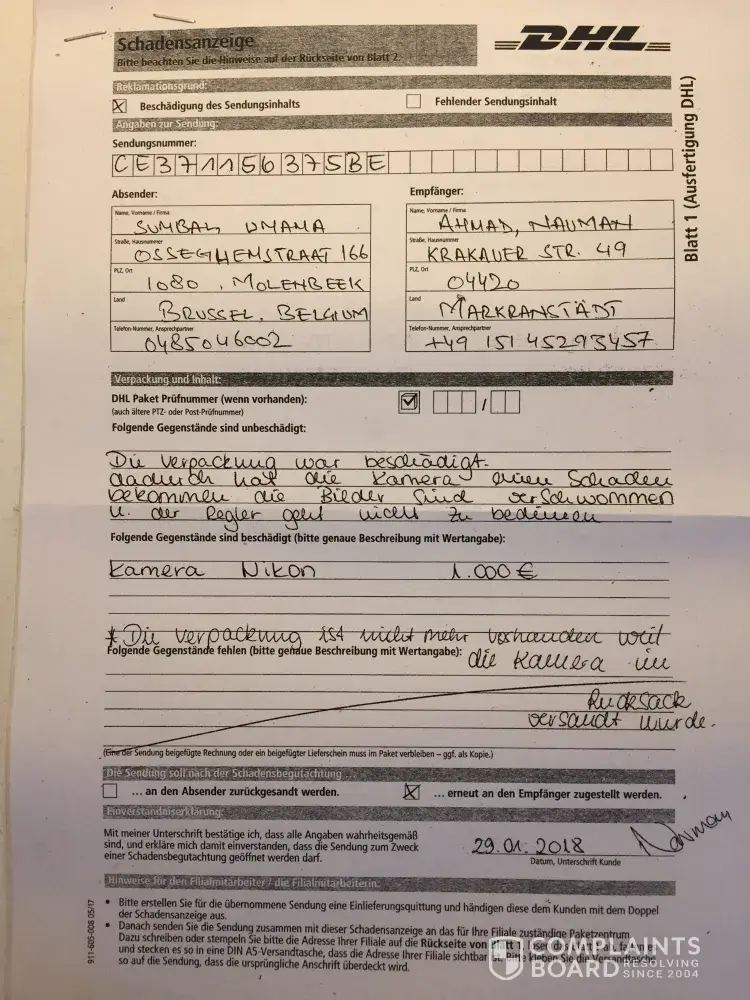 Schadensanzeige
Bitte beachten Sie die Hinweise auf der Rückseite von Blatt 2.
DHL
Reklamationsgrund:
Beschädigung des Sendungsinhalts
Fehlender Sendungsinhalt
Angaben zur Sendung:
Sendungsnummer:
CE371156375BE
Absender:
Name, Vorname / Firma
SUMBAL UMAMA
Straße, Hausnummer
OSSEGHEMSTRAAT 166
PLZ, Ort
1080 , MOLENBEEK
Land
BRUSSEL, BELGIUM
Telefon-Nummer, Ansprechpartner
0485046002
Empfänger:
Name, Vorname / Firma
AHMAD, NAUMAN
Straße, Hausnummer
KRAKAUER STR. 49
PLZ, Ort
04420
Land
MARKRANSTÄDT
Telefon-Nummer, Ansprechpartner
+49 151 45293457
Blatt 1 (Ausfertigung DHL)
Verpackung und Inhalt:
DHL Paket Prüfnummer (wenn vorhanden):
/
(auch ältere PTZ- oder Post-Prüfnummer)
Folgende Gegenstände sind unbeschädigt:
Die Verpackung war beschädigt.
dadurch hat die Kamera einen Schaden
bekommen die Bilder sind verschwommen
u. der Regler geht nicht zu bedienen
Folgende Gegenstände sind beschädigt (bitte genaue Beschreibung mit Wertangabe):
Kamera Nikon 1.000 €
* Die Verpackung ist nicht mehr vorhanden weil
Folgende Gegenstände fehlen (bitte genaue Beschreibung mit Wertangabe):
die Kamera im
Rucksack
versandt wurde.
(Eine der Sendung beigefügte Rechnung oder ein beigefügter Lieferschein muss im Paket verbleiben – ggf. als Kopie.)
Die Sendung soll nach der Schadensbegutachtung
... an den Absender zurückgesandt werden.
... erneut an den Empfänger zugestellt werden.
Einverständniserklärung:
Mit meiner Unterschrift bestätige ich, dass alle Angaben wahrheitsgemäß
sind, und erkläre mich damit einverstanden, dass die Sendung zum Zweck
einer Schadensbegutachtung geöffnet werden darf.
29.01.2018
Nauman
Datum, Unterschrift Kunde
Hinweise für den Filialmitarbeiter / die Filialmitarbeiterin:
• Bitte erstellen Sie für die übernommene Sendung eine Einlieferungsquittung und händigen diese dem Kunden mit dem Doppel
der Schadensanzeige aus.
• Danach senden Sie die Sendung zusammen mit dieser Schadensanzeige an das für Ihre Filiale zuständige Paketzentrum.
Dazu schreiben oder stempeln Sie bitte die Adresse Ihrer Filiale auf die Rückseite von Blatt 1,
und stecken es so in eine DIN A5-Versandtasche, dass die Adresse Ihrer Filiale sichtbar ist. Bitte kleben Sie die Versandtasche
so auf die Sendung, dass die ursprüngliche Anschrift überdeckt wird.
911-605-008 05/17
COMPLAINTS
BOARD
RESOLVING
SINCE 2004